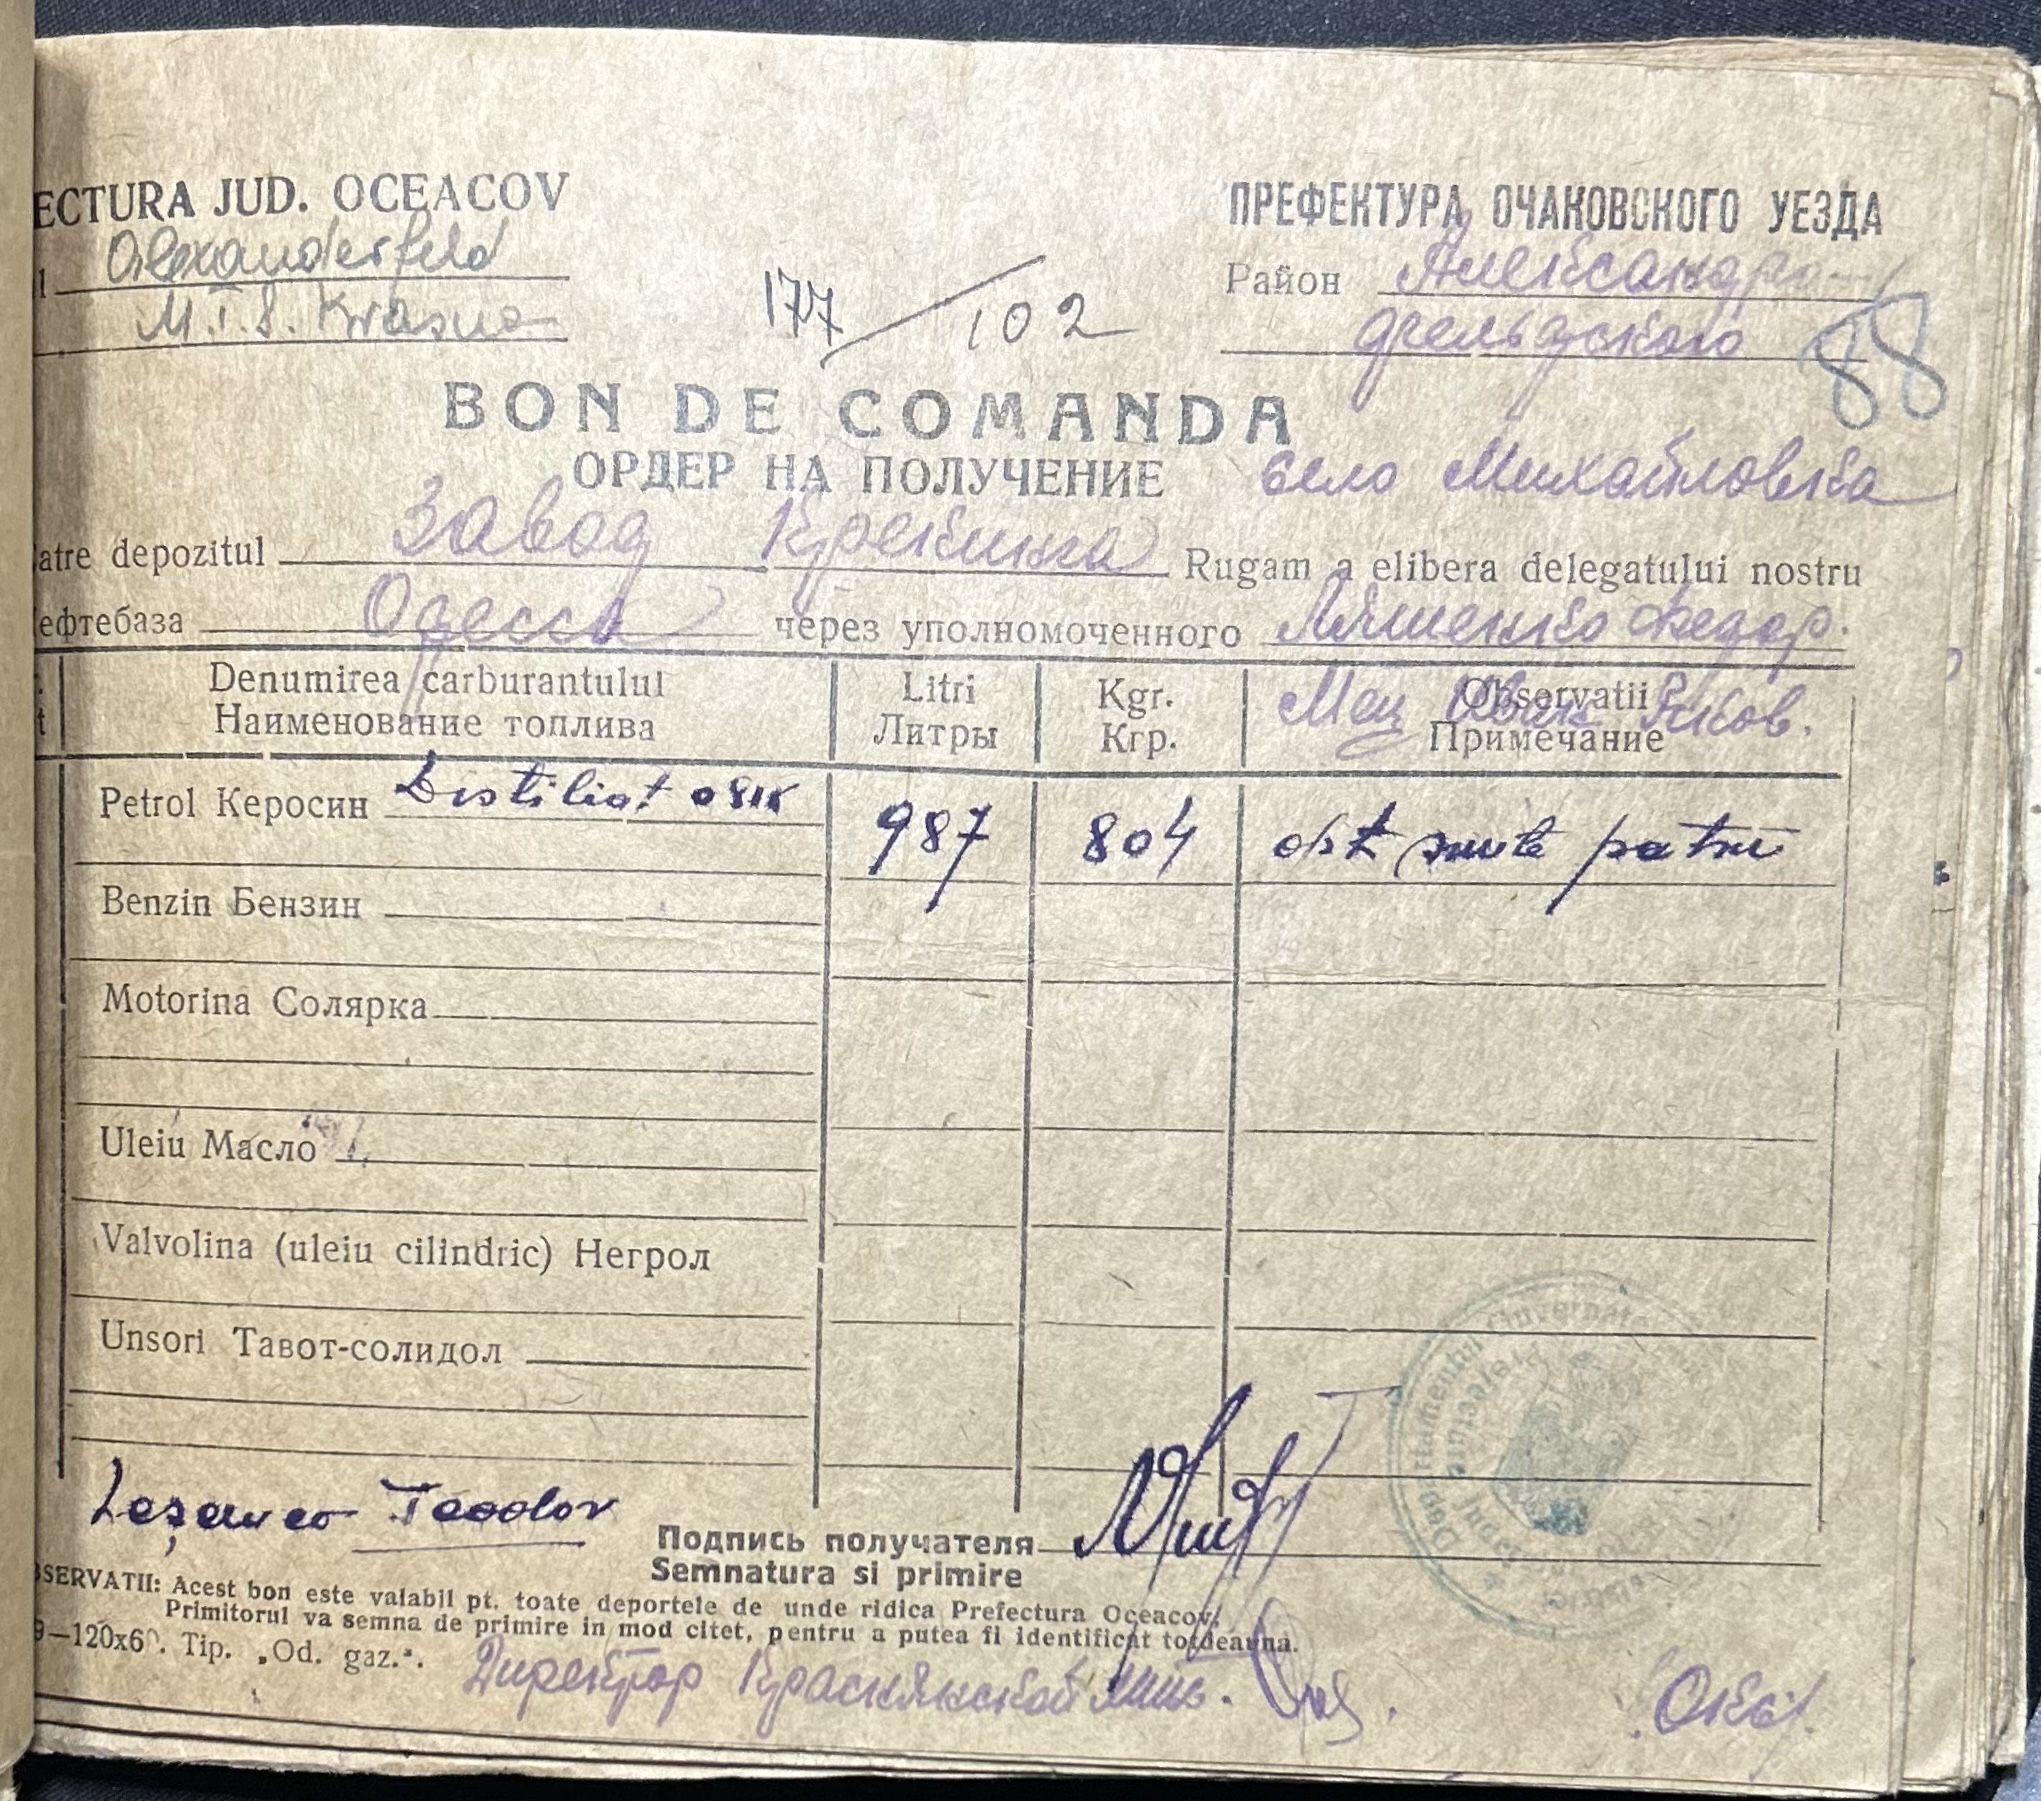 ECTURA JUD. OCEACOV
ПРЕФЕКТУРА ОЧАКОВСКОГО УЕЗДА
l Alexanderfeld
M.T.S. Krasna
177/102
Район Александро-
фельдского
88
BON DE COMANDA
ОРДЕР НА ПОЛУЧЕНИЕ
село Михайловка
atre depozitul Завод Крекинга Rugam a elibera delegatului nostru
ефтебаза Одесса через уполномоченного Ляшенко Федор.
Denumirea carburantului Litri Kgr. Observatii
Наименование топлива Литры Кгр. Примечание
Мец Иван Яков.
Petrol Керосин Distiliat 987 804 opt sute patru
Benzin Бензин
Motorina Солярка
Uleiu Масло
Valvolina (uleiu cilindric) Негрол
Unsori Тавот-солидол
Leșenco Teodor
Подпись получателя
Semnatura si primire
SERVATII: Acest bon este valabil pt. toate deportele de unde ridica Prefectura Oceacov.
Primitorul va semna de primire in mod citet, pentru a putea fi identificat totdeauna.
9—120x60. Tip. „Od. gaz.".
Директор Краснянской